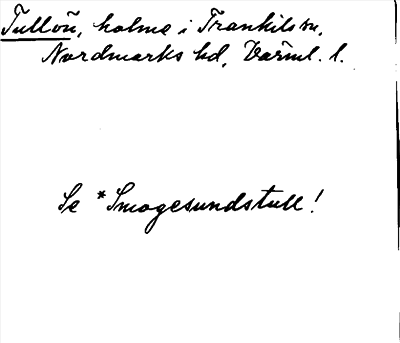 Tullön, holme i Trankils sn,
Nordmarks hd, Värml. l.
Se *Smogesundstull!